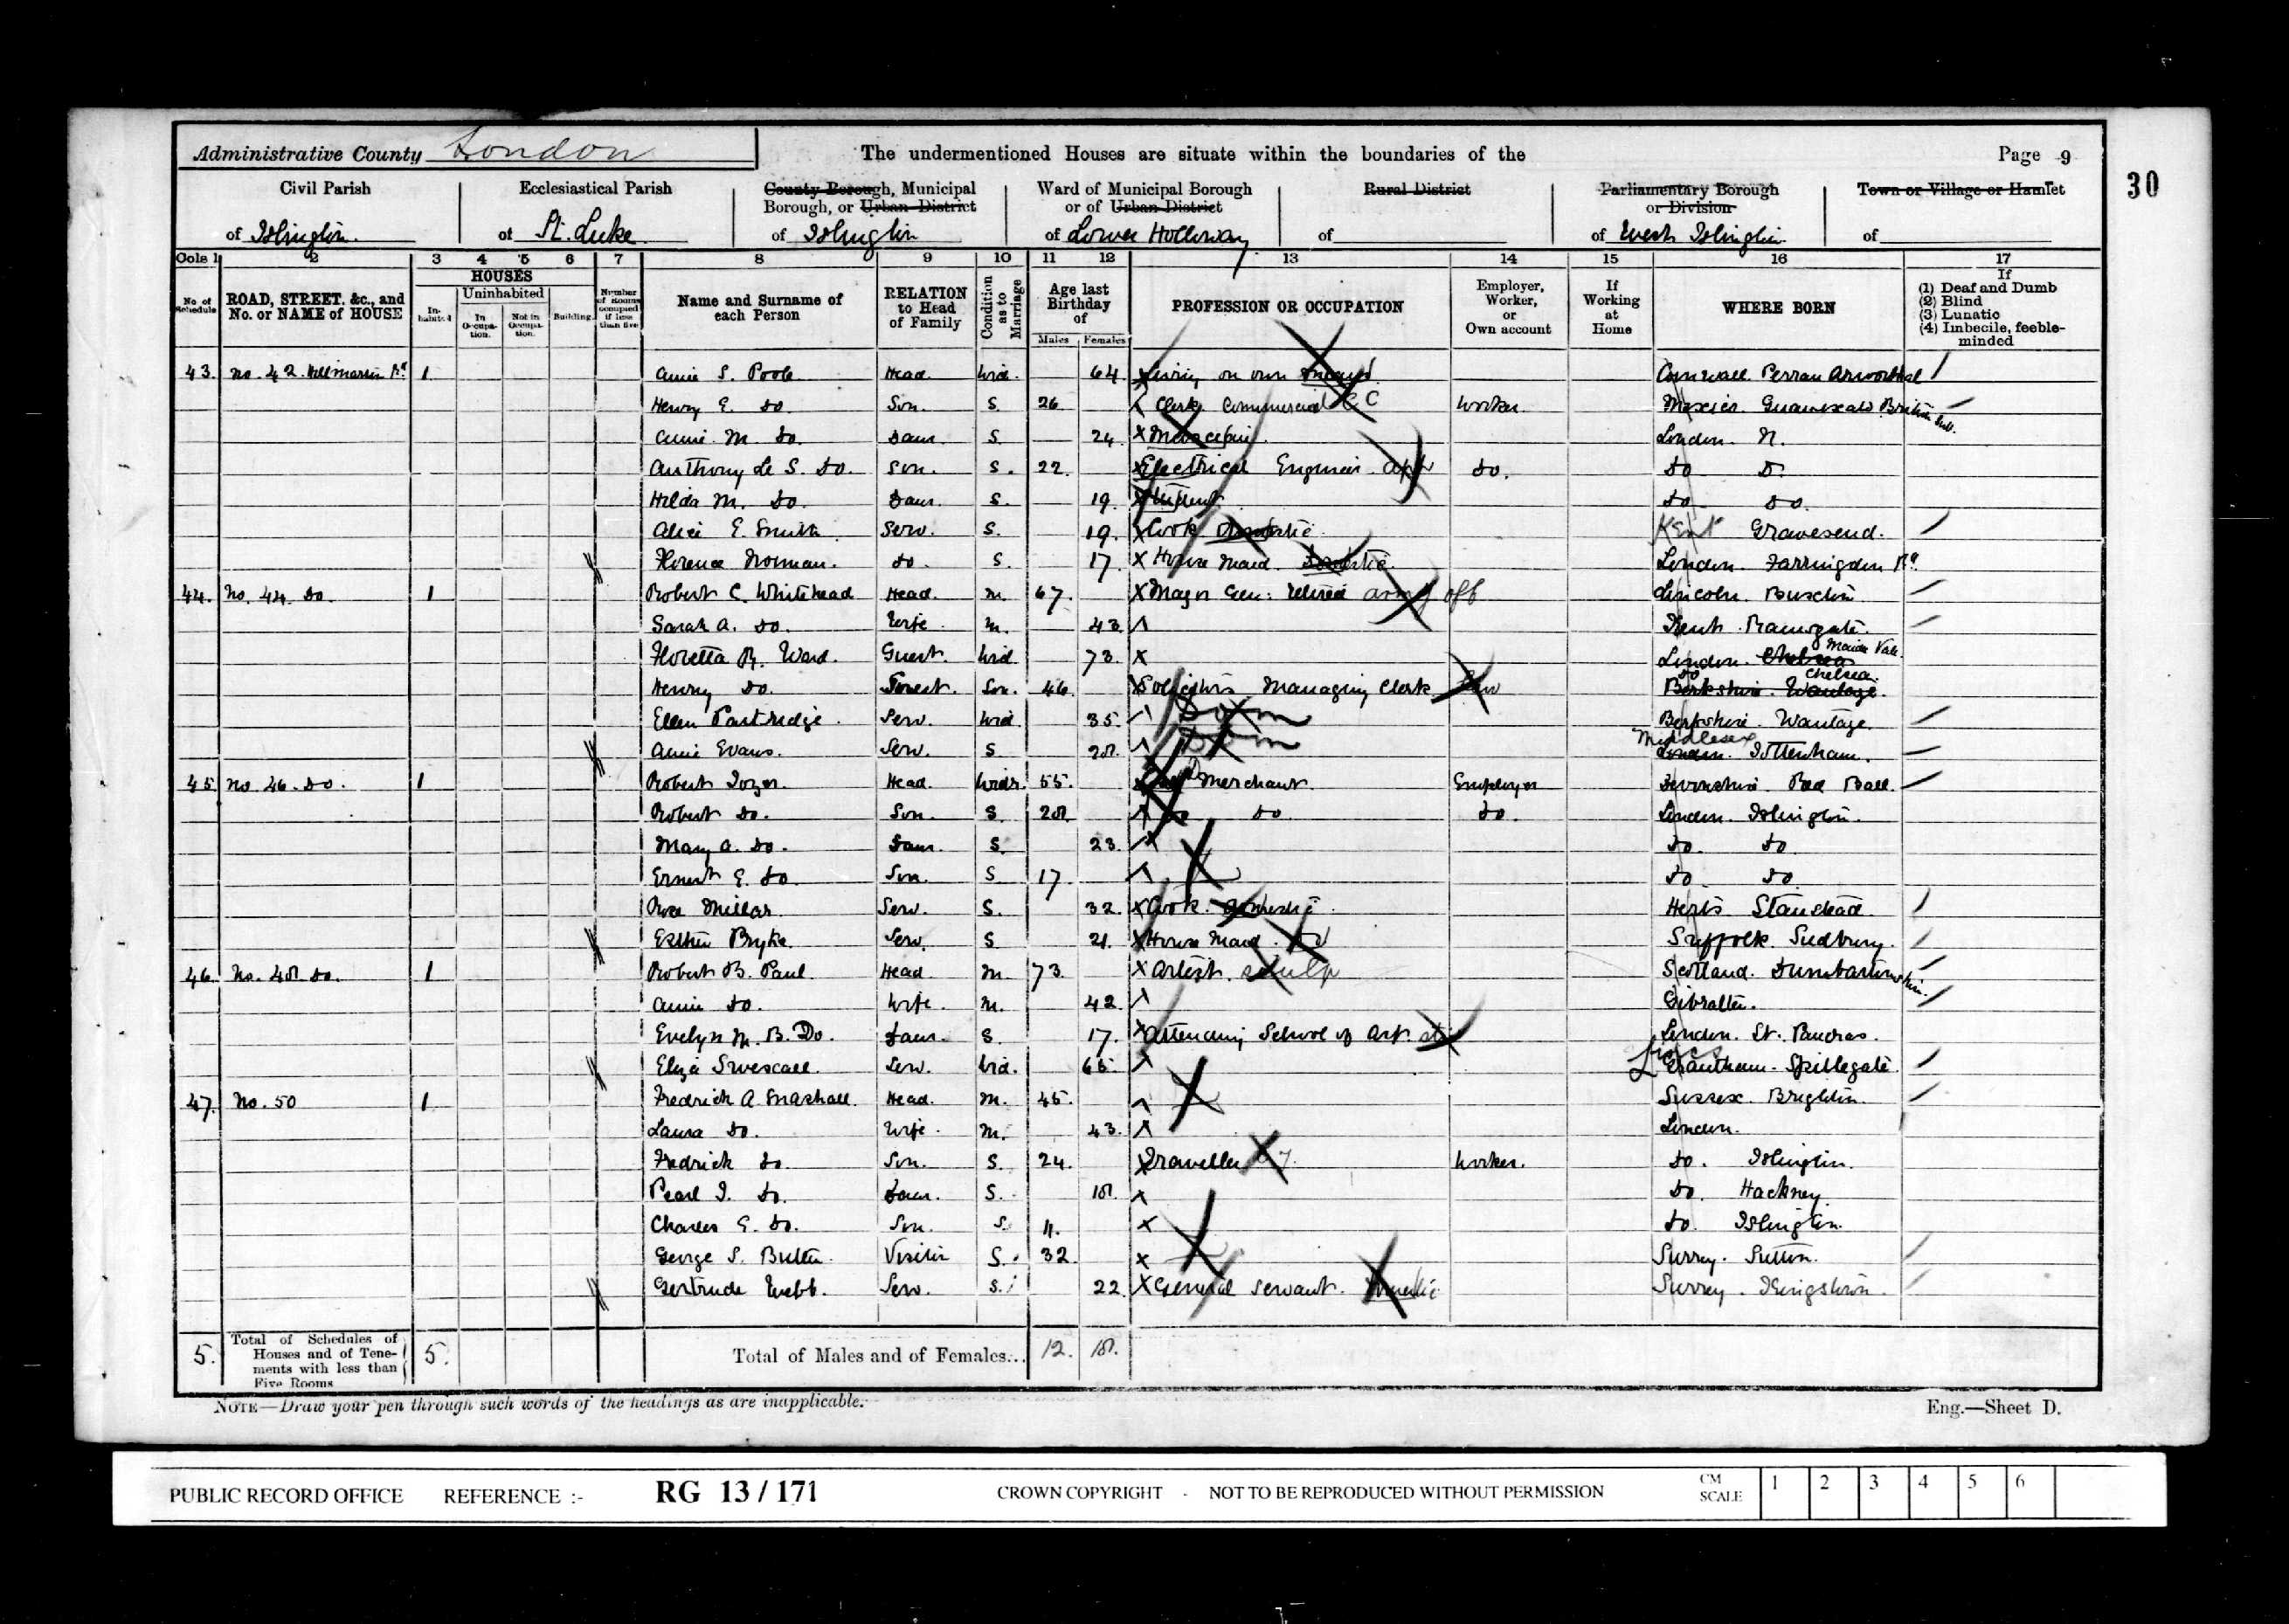 Administrative County London The undermentioned Houses are situate within the boundaries of the Page 9
30
Civil Parish Ecclesiastical Parish County Borough, Municipal Borough, or Urban District Ward of Municipal Borough or of Urban District Rural District Parliamentary Borough or Division Town or Village or Hamlet
of Islington. of St. Luke of Islington of Lower Holloway of of West Islington of
Cols 1 2 3 4 5 6 7 8 9 10 11 12 13 14 15 16 17
No. of Schedule ROAD, STREET, &c., and No. or NAME of HOUSE HOUSES Inhabited Uninhabited In Occupation. Not in Occupation. Building Number of Rooms occupied if less than five Name and Surname of each Person RELATION to Head of Family Condition as to Marriage Age last Birthday of Males Females PROFESSION OR OCCUPATION Employer, Worker, or Own account If Working at Home WHERE BORN If (1) Deaf and Dumb (2) Blind (3) Lunatic (4) Imbecile, feeble-minded
43. No. 42. Hillmarton Rd 1 Annie S. Poole Head. Wid. 64 Living on own means Cornwall Perran Arworthal
Henry E. Do Son. S. 26 Clerk Commercial CC Worker. Mexico British Sub.
Annie M. Do. Daur. S. 24. London. N.
Anthony Le S. Do. Son. S. 22. Electrical Engineer App Do. Do Do
Hilda M. Do. Daur. S. 19. Student Do Do.
Alice E. Smith Serv. S. 19. Cook Domestic Kent Gravesend.
Florence Norman. Do. S. 17. House Maid. Domestic London. Farringdon Rd.
44. No. 44. Do. 1 Robert C. Whitehead Head. M. 67. Major Gen: retired army off Lincoln.
Sarah A. Do. Wife M. 43. Kent Ramsgate.
Floretta R. Ward. Guest. Wid. 73. London. Chelsea Maida Vale.
Henry Do. Guest. 46. Solicitors Managing Clerk Law Do Chelsea. Berkshire. Wantage.
Ellen Partridge. Serv. Wid. 35. Dom Berkshire. Wantage.
Annie Evans. Serv. S 28. Dom Middlesex London Tottenham.
45. No. 46. Do. 1 Robert Tozer. Head. Widr. 55. Merchant Employer Devonshire. Red Ball.
Robert Do. Son. S. 28. Do Do Do. London. Islington.
Mary A. Do. Daur. S. 23. Do. Do
Ernest E. Do. Son. S 17. Do Do.
Rose Millar. Serv. S. 32. Cook. Domestic. Herts Stanstead.
Esther Serv. S 21. House Maid. Do Suffolk Sudbury.
46. No. 48. Do. 1 Robert B. Paul. Head. M. 73. Artist. sculp Scotland. Dumbartonshire.
Annie Do. Wife. M. 42. Gibraltar.
Evelyn M. B. Do. Daur. S. 17. Attending School of Art. London. St. Pancras.
Eliza Serv. Wid. 65. Lincs Grantham. Spittlegate.
47. No. 50 1 Fredrick A. Mashall. Head. M. 45. Sussex. Brighton.
Laura Do. Wife. M. 43. London.
Fredrick Do. Son. S. 24. Traveller Worker. Do. Islington.
Pearl I. Do. Daur. S. 18. Do. Hackney
Charles E. Do. Son. S. 11. Do. Islington.
George S. Visitor S. 32. Surrey. Sutton.
Gertrude Webb. Serv. S. 22. General Servant. Domestic Surrey. Kingston.
5. Total of Schedules of Houses and of Tenements with less than Five Rooms 5. Total of Males and of Females... 12. 18.
NOTE—Draw your pen through such words of the headings as are inapplicable. Eng.—Sheet D.
PUBLIC RECORD OFFICE REFERENCE :- RG 13/171 CROWN COPYRIGHT · NOT TO BE REPRODUCED WITHOUT PERMISSION CM SCALE 1 2 3 4 5 6